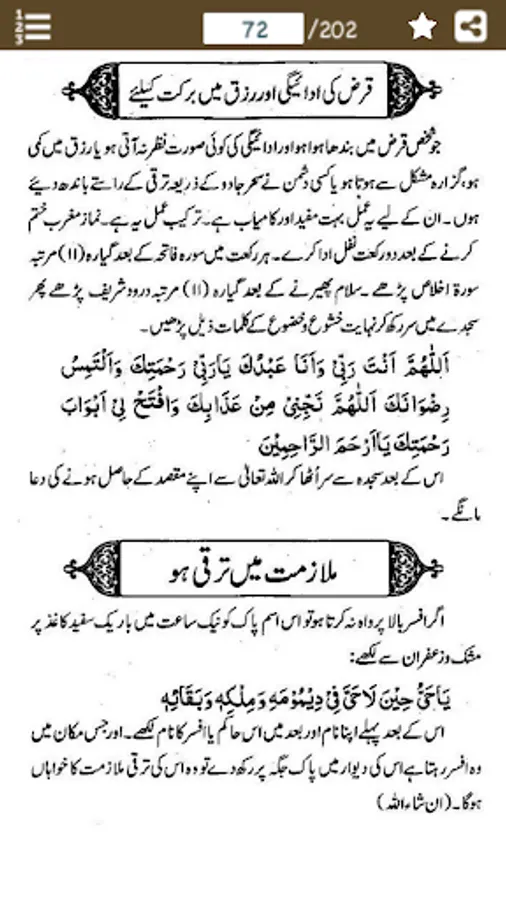 72 /202
قرض کی ادائیگی اور رزق میں برکت کیلئے
جو شخص قرض میں بندھا ہوا ہو اور ادائیگی کی کوئی صورت نظر نہ آتی ہو یا رزق میں کمی
ہو، گزارہ مشکل سے ہوتا ہو یا کسی دشمن نے سحر جادو کے ذریعہ ترقی کے راستے باندھ دیئے
ہوں۔ ان کے لیے یہ عمل بہت مفید اور کامیاب ہے۔ ترکیب عمل یہ ہے۔ نماز مغرب ختم
کرنے کے بعد دو رکعت نفل ادا کرے۔ ہر رکعت میں سورہ فاتحہ کے بعد گیارہ (۱۱) مرتبہ
سورۃ اخلاص پڑھے۔ سلام پھیرنے کے بعد گیارہ (۱۱) مرتبہ درود شریف پڑھے پھر
سجدے میں سر رکھ کر نہایت خشوع و خضوع کے کلمات ذیل پڑھیں۔
اَللّٰهُمَّ اَنْتَ رَبِّیْ وَاَنَا عَبْدُكَ یَارَبِّیْ رَحْمَتِكَ وَالْتَمِسُ
رِضْوَانَكَ اَللّٰهُمَّ نَجِّنِیْ مِنْ عَذَابِكَ وَافْتَحْ لِیْ اَبْوَابَ
رَحْمَتِكَ یَااَرْحَمَ الرَّاحِمِیْنَ
اس کے بعد سجدہ سے سر اُٹھا کر اللہ تعالیٰ سے اپنے مقصد کے حاصل ہونے کی دعا
مانگے۔
ملازمت میں ترقی ہو
اگر افسر بالا پرواہ نہ کرتا ہو تو اس اسم پاک کو نیک ساعت میں باریک سفید کاغذ پر
مشک و زعفران سے لکھے:
یَاحَیُّ حِیْنَ لَاحَیَّ فِیْ دِیْمُوْمَهٖ وَمِلْكِهٖ وَبَقَائِهٖ
اس کے بعد پہلے اپنا نام اور بعد میں اس حاکم یا افسر کا نام لکھے۔ اور جس مکان میں
وہ افسر رہتا ہے اس کی دیوار میں پاک جگہ پر رکھ دے تو وہ اس کی ترقی ملازمت کا خواہاں
ہوگا۔ (ان شاء اللہ)